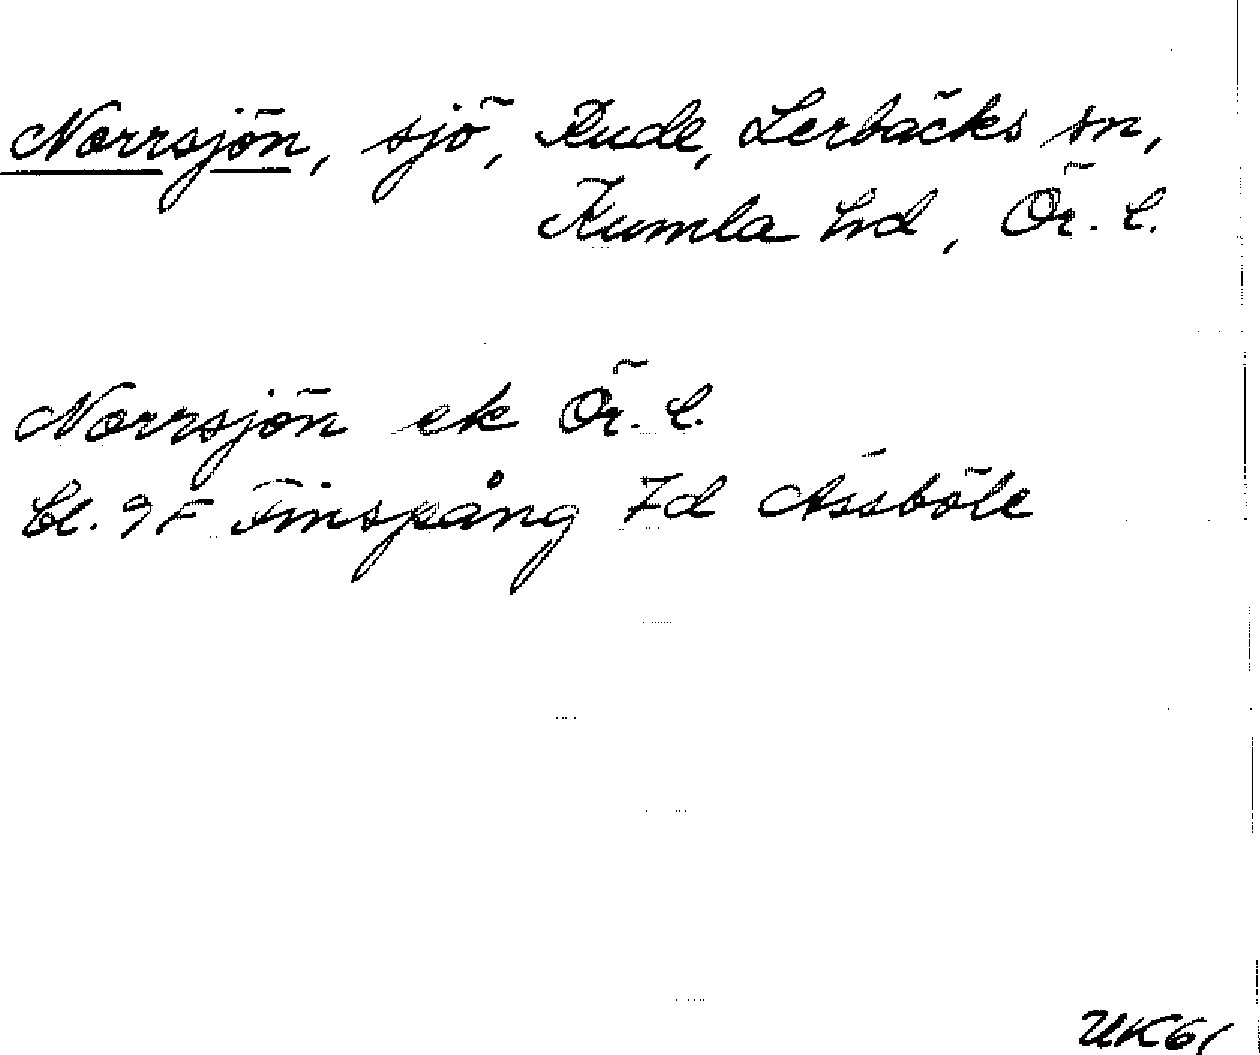 Norrsjön, sjö, Rude, Lerbäcks sn,
Kumla hd, Ör. l.
Norrsjön ek Ör. l.
bl. 9F Finspång 7d Åssböle
UK61